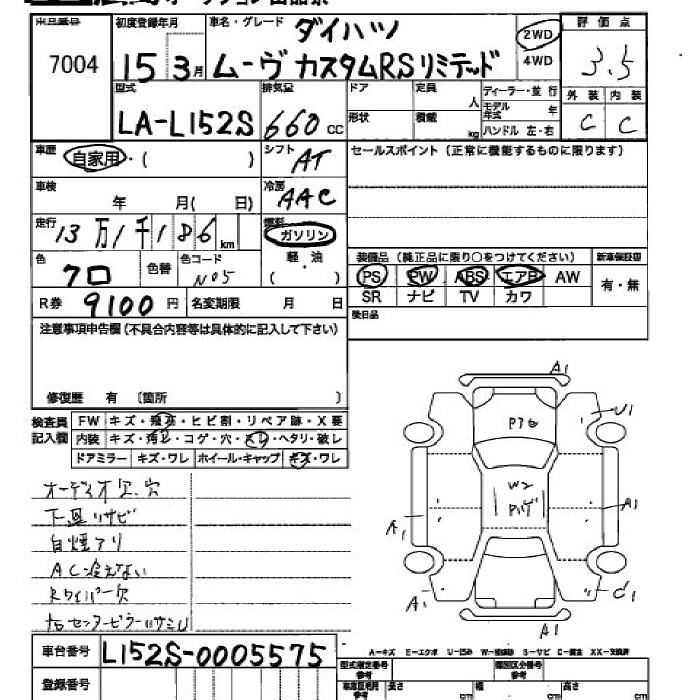 出品番号 初度登録年月 車名・グレード ダイハツ 2WD 評価点
7004 15 3月 ムーヴ カスタムRSリミテッド 4WD 3.5
型式 排気量 ドア 定員 人 ディーラー・並行 外装 内装
LA-L152S 660 cc 形状 積載 kg モデル年式 年 C C
ハンドル 左・右
車歴 自家用・( ) シフト AT セールスポイント(正常に機能するものに限ります)
車検 年 月( 日) 冷房 AAC
走行 13万1千186km 燃料 ガソリン
装備品(純正品に限り○をつけてください) 新車保証書
色 クロ 色替 色コード No5 軽・油 ( ) PS PW ABS エアB AW 有・無
SR ナビ TV カワ
R券 9100円 名変期限 月 日 後日品
注意事項申告欄(不具合内容等は具体的に記入して下さい)
修復歴 有 〔箇所 〕
検査員 FW キズ・飛石・ヒビ割・リペア跡・X要
記入欄 内装 キズ・汚レ・コゲ・穴・スレ・ヘタリ・破レ
ドアミラー キズ・ワレ ホイール・キャップ キズ・ワレ
オーディオ欠.穴
下廻サビ
白煙アリ
AC冷えない
Rワイパー欠
センターピラー
A1
U1
W2
A1
A1
A1
A1
車台番号 L152S-0005575
A-キズ E-エクボ U-凹み W-補修跡 S-サビ C-腐食 XX-交換済
登録番号 型式指定番号 参考 類別区分番号 参考
長さ cm 幅 cm 高さ cm